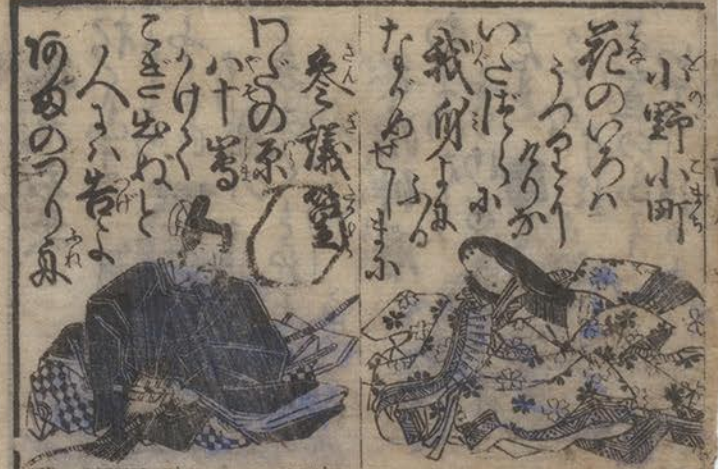 小野小町
花のいろハ
うつりに
けりな
いたづらに
我身よに
ふる
ながめせしまに
參議篁
わだの原
八十嶌
かけて
こぎ出ぬと
人にハ告よ
阿まのつり舟